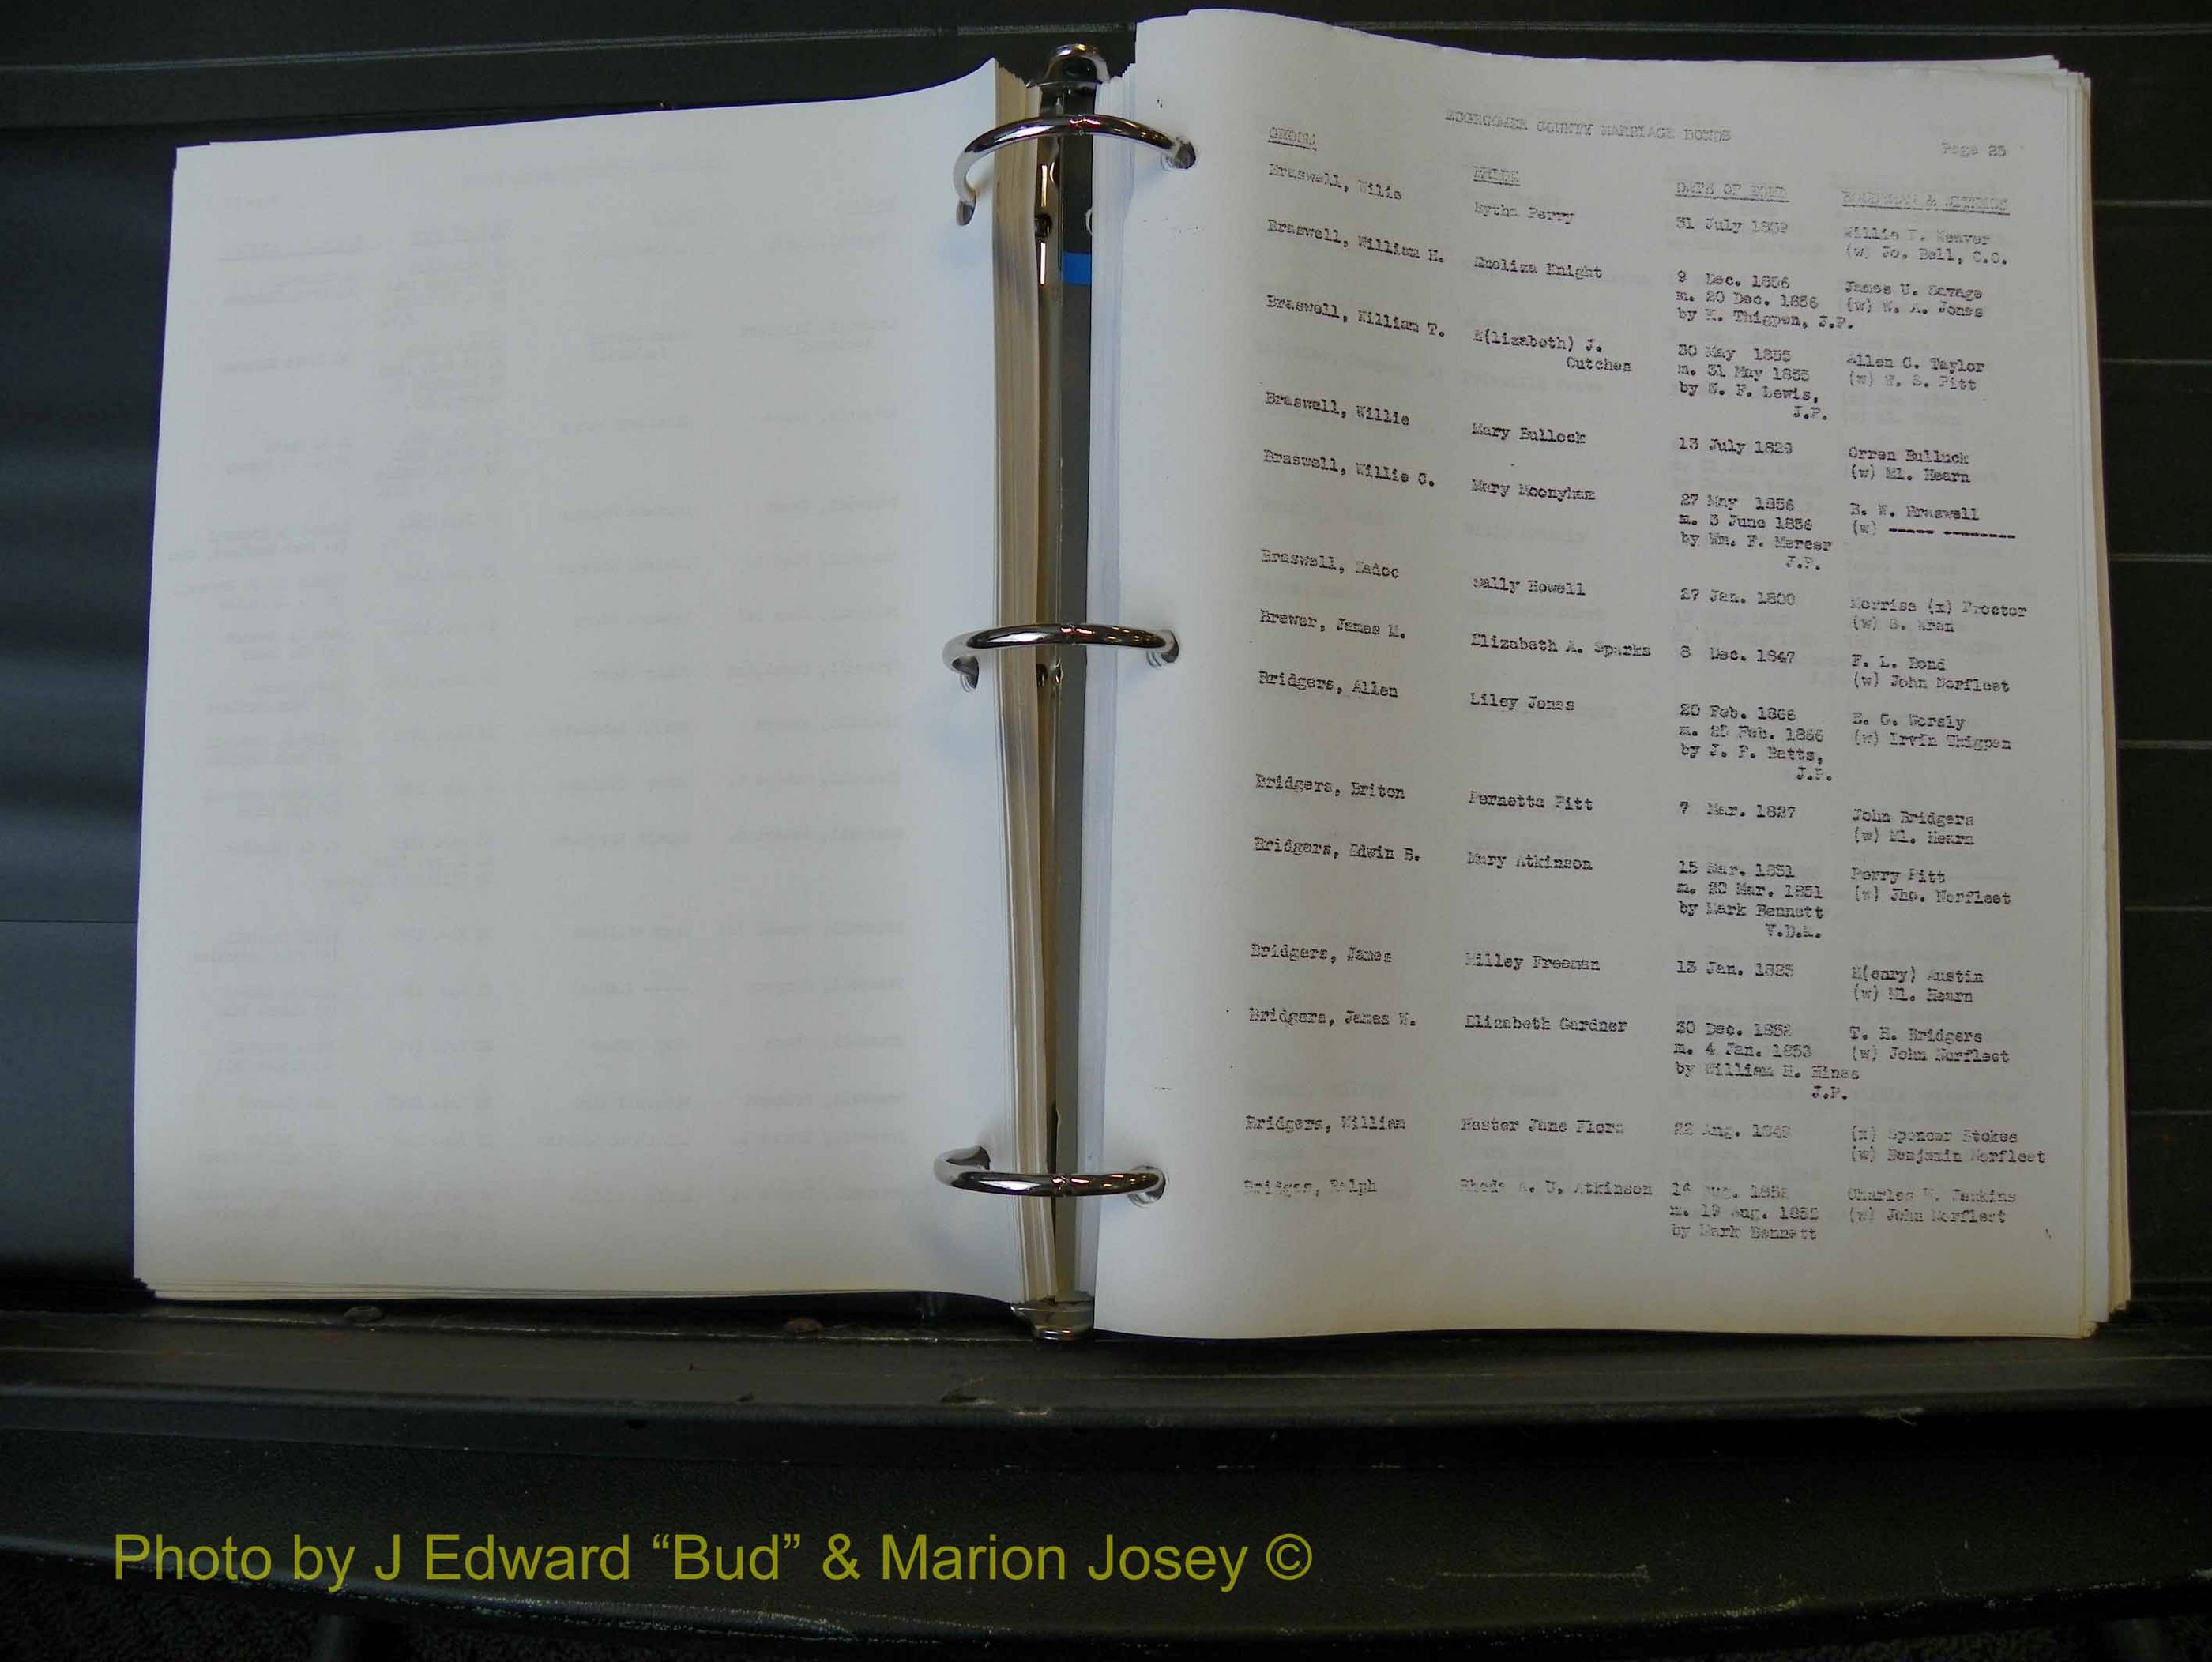 EDGECOMBE COUNTY MARRIAGE BONDS
Page 25
GROOM BRIDE DATE OF BOND BONDSMAN & WITNESS
Braswell, Wilie Perry 31 July 1859 Willie Weaver
(w) Jo. Bell, C.C.
Braswell, William H. Emeliza Knight 9 Dec. 1856 James U. Savage
m. 20 Dec. 1856 (w) W. A. Jones
by K. Thigpen, J.P.
Braswell, William T. E(lizabeth) J. 30 May 1855 Allen C. Taylor
Cutchen m. 31 May 1855 (w) Pitt
by S. F. Lewis,
J.P.
Braswell, Willie Mary Bullock 13 July 1829 Orren Bulluck
(w) Ml. Hearn
Braswell, Willie C. Mary Moonyham 27 May 1856 B. W. Braswell
m. 3 June 1856 (w) ----- --------
by Wm. F. Mercer
J.P.
Braswell, Zadoc Sally Howell 27 Jan. 1800 Morriss (x) Proctor
(w) S. Wren
Brewer, James M. Elizabeth A. Sparks 8 Dec. 1847 F. L. Bond
(w) John Norfleet
Bridgers, Allen Liley Jones 20 Feb. 1866 E. G. Worsly
m. 25 Feb. 1866 (w) Irvin Thigpen
by J. P. Batts,
J.P.
Bridgers, Briton Pernetta Pitt 7 Mar. 1827 John Bridgers
(w) Ml. Hearn
Bridgers, Edwin B. Mary Atkinson 15 Mar. 1851 Perry Pitt
m. 20 Mar. 1851 (w) Jno. Norfleet
by Mark Bennett
V.D.M.
Bridgers, James Milley Freeman 13 Jan. 1825 H(enry) Austin
(w) Ml. Hearn
Bridgers, James W. Elizabeth Gardner 30 Dec. 1852 T. E. Bridgers
m. 4 Jan. 1853 (w) John Norfleet
by William H. Hines
J.P.
Bridgers, William Hester Jane Flora 22 Aug. (x) Spencer Stokes
(w) Benjamin Norfleet
Bridges, Ralph Rhoda A. U. Atkinson Aug. 1852 Charles W. Jenkins
m. 19 Aug. 1852 (w) John Norfleet
by Mark Bennett
Photo by J Edward “Bud” & Marion Josey ©